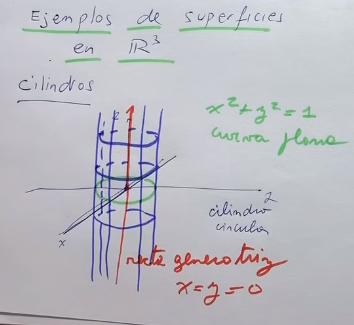 Ejemplos de superficies
en ℝ³
cilindros
x²+y²=1
curva plana
z
y
cilindro
circular
x
recta generatriz
x=y=0